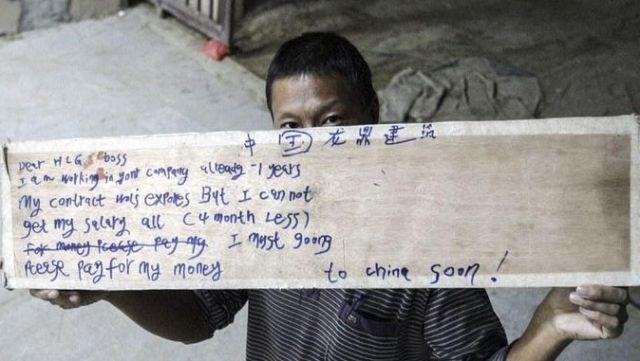 中国龙鼎建筑
Dear HLG boss
I am working in yont company already 1 years
My contract wolj expores But I can not
get my salary all (4 month Less)
for money Pcease pay my I must going
Pcese pay for my money to china soon!